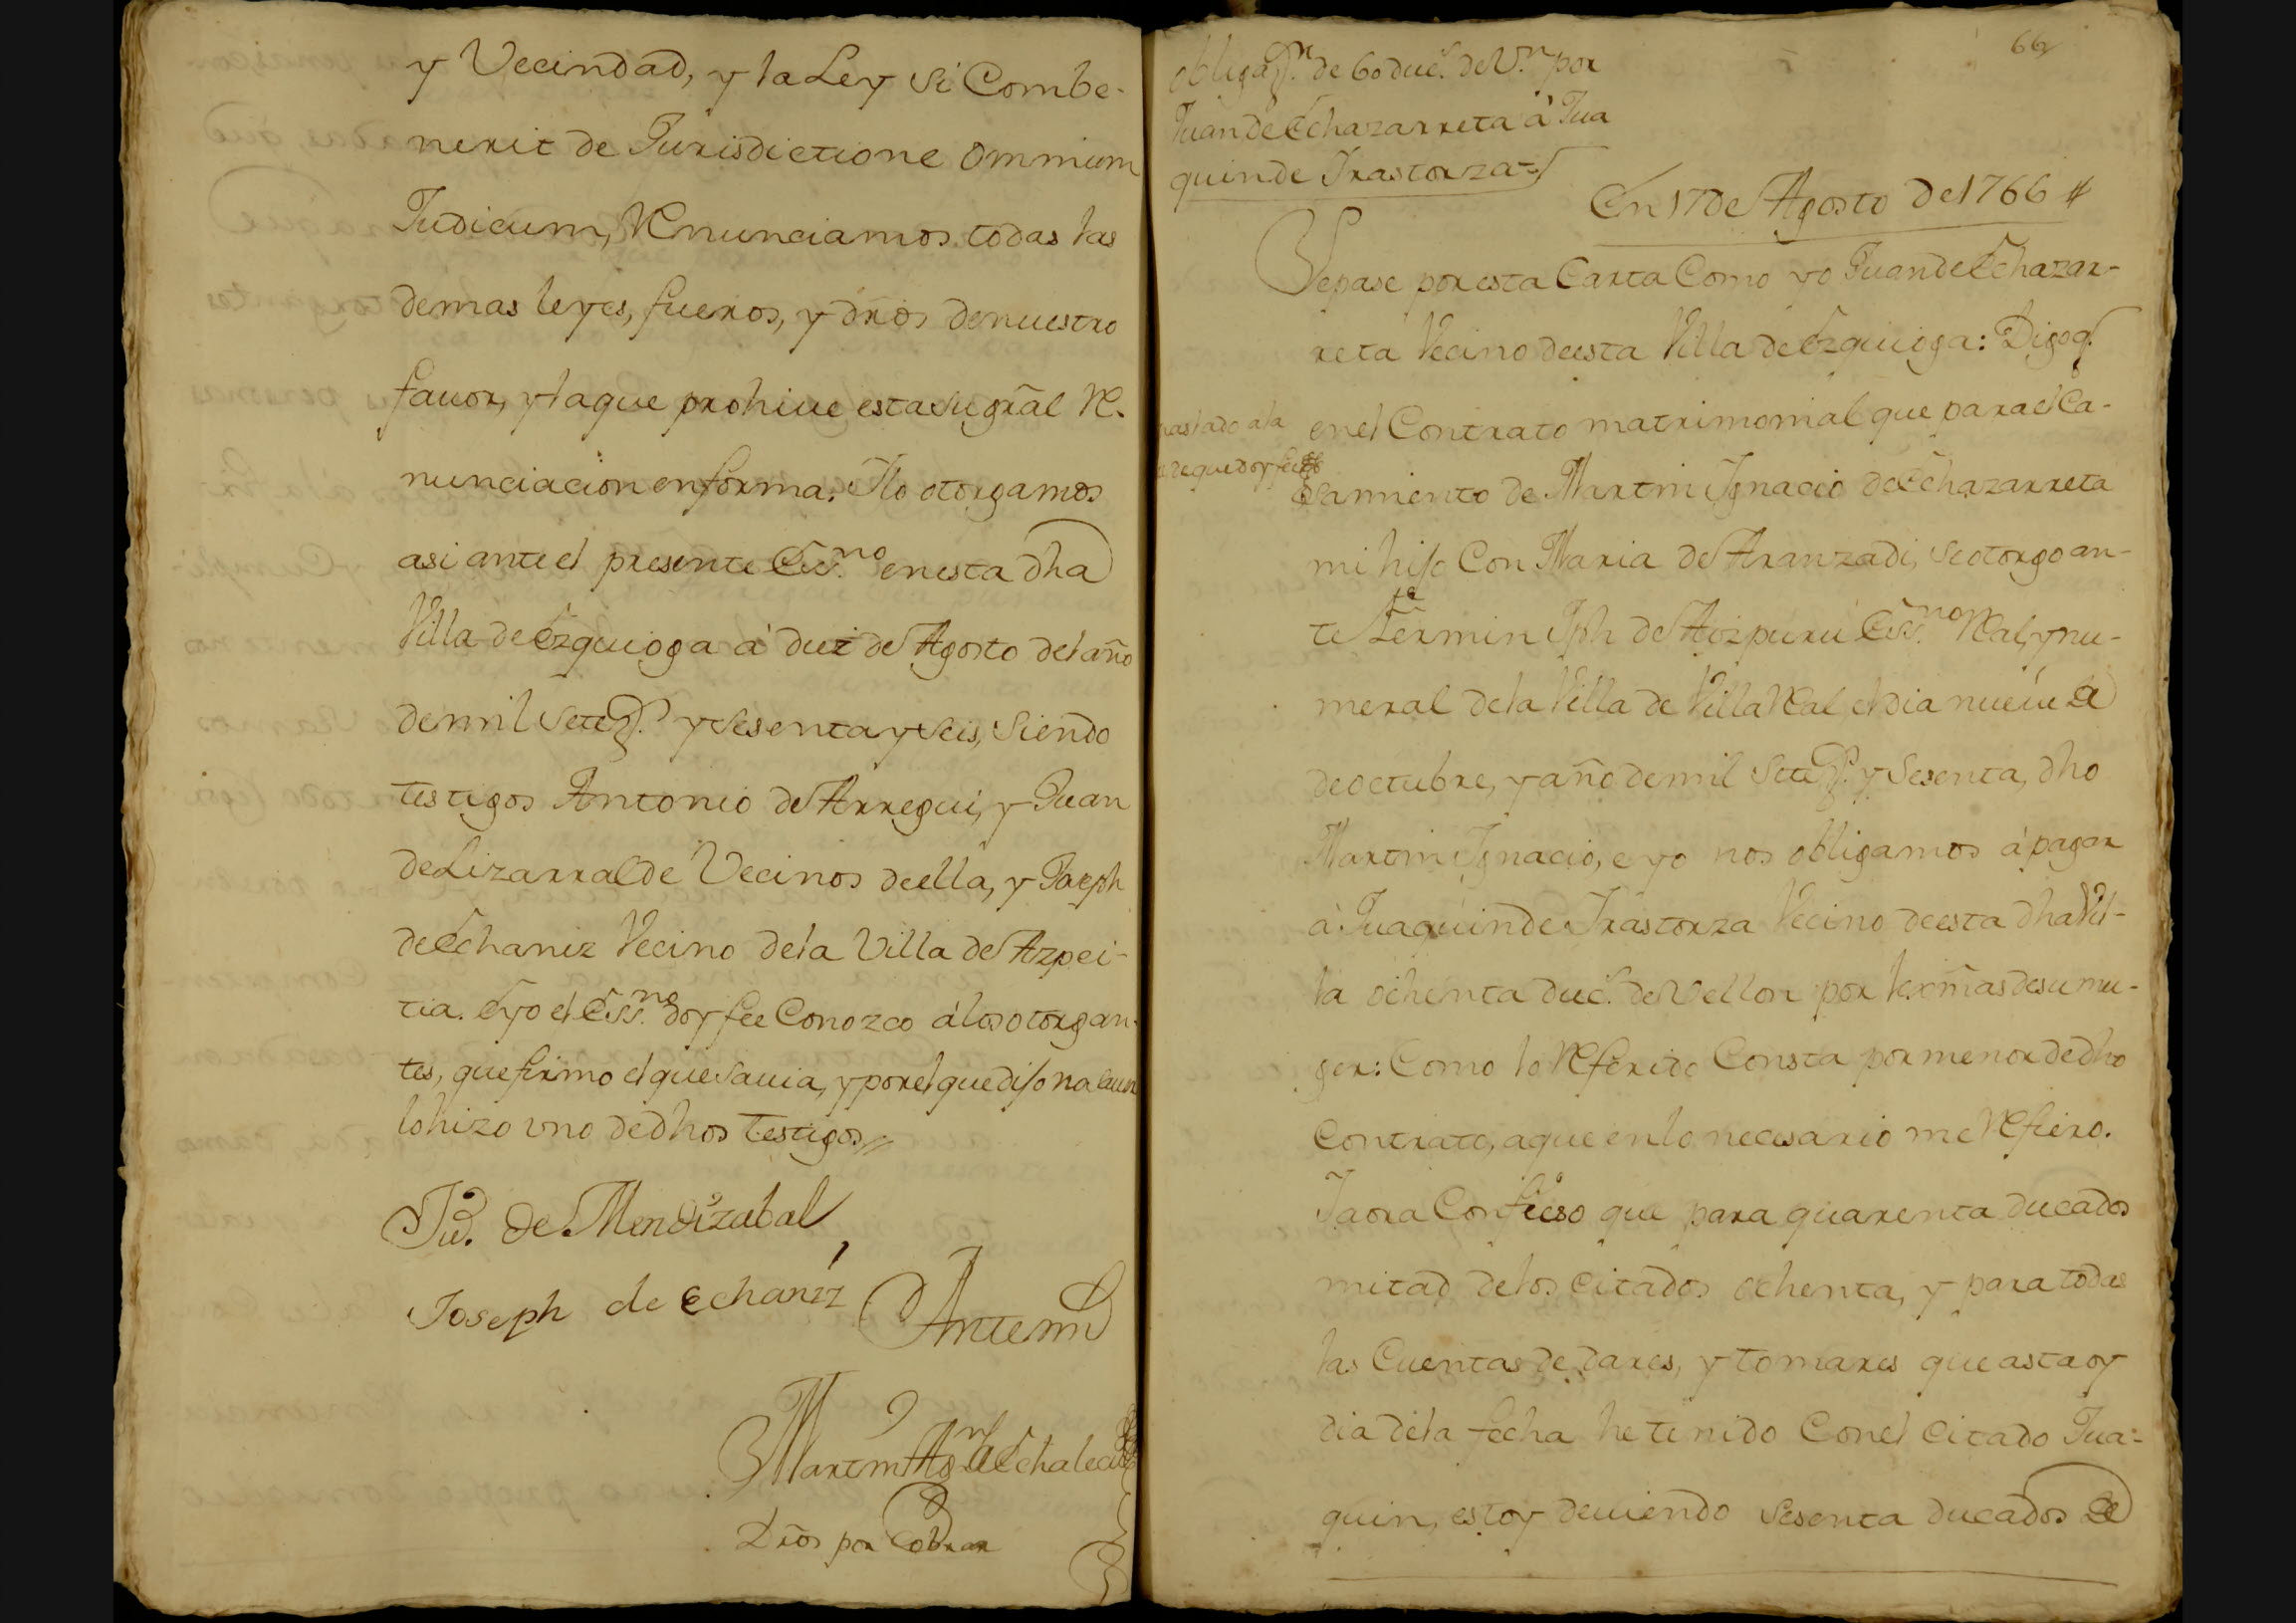 y Vecindad, y la Ley Si Combe-
nerit de Jurisdictione omnium
Judicum, Renunciamos todas las
demas leyes, fueros, y dr̃os de nuestro
favor, y la que prohive esta su gr̃al Re-
nunciacion en forma. Y lo otorgamos
asi ante el presente Ess.no en esta dha
Villa de Ezquioga à diez de Agosto del año
de mil Setez.s y Sesenta y Seis, Siendo
testigos Antonio de Arregui, y Juan
de Lizarralde Vecinos de ella, y Joseph
de Echaniz Vecino de la Villa de Azpei-
tia. E yo el Ess.no doy fee Conozco à los otorgan-
tes, que firmo el que Savia, y por el que dijo no saver
lo hizo uno de dhos testigos
Ju. de Mendizabal
Joseph de echaniz Ante mi
Martin Ag.n de Echalecu
Dr̃os por Cobrar
66
obligaz.n de 60 duc.s de V.n por
Juan de Echazarreta à Jua
quin de Irastorza
En 17 de Agosto de 1766
Sepase por esta Carta Como yo Juan de Echazar-
reta Vecino de esta Villa de Ezquioga: Digo q.
en el Contrato matrimonial que para el Ca-
traslado a la
de que doy fee
samiento de Martin Ignacio de Echazarreta
mi hijo Con Maria de Aranzadi, se otorgo an-
te Fermin Jph de Aizpuru Ess.no Real, y nu-
meral de la Villa de Villa Real el dia nueve de
de octubre, y año de mil Setez.s y Sesenta, dho
Martin Ignacio, e yo nos obligamos à pagar
à Juaquin de Irastorza Vecino de esta dha Vil-
la ochenta duc.s de Vellon por lexmas de su mu-
ger: Como lo Referido Consta por menor de dho
Contrato, a que en lo necesario me Refiero.
Y aora Confieso que para quarenta ducados
mitad de los citados ochenta, y para todas
las Cuentas de dares, y tomares que asta oy
dia de la fecha he tenido Con el Citado Jua-
quin, estoy deviendo Sesenta ducados de